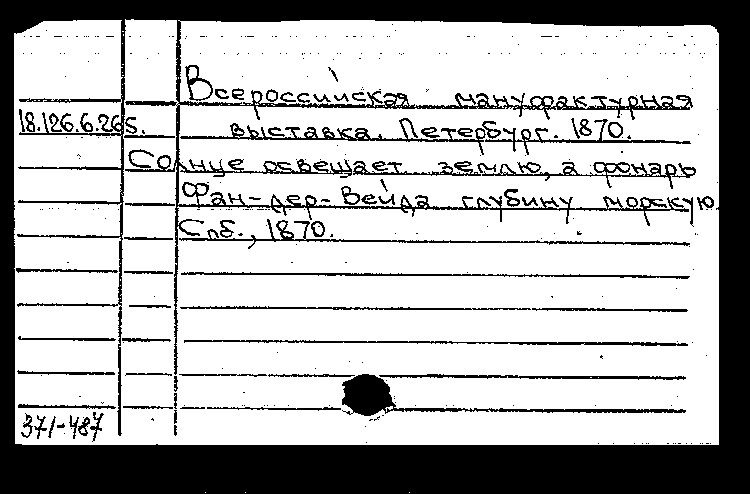 Всероссийская мануфактурная
18.126.6.26 5. выставка. Петербург. 1870.
Солнце освещает землю, а фонарь
Фан-дер-Вейда глубину морскую
Спб., 1870.
371-487